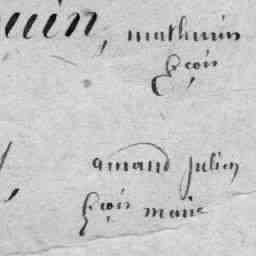 uin, mathurin
fçois
amand julien
fçois marie